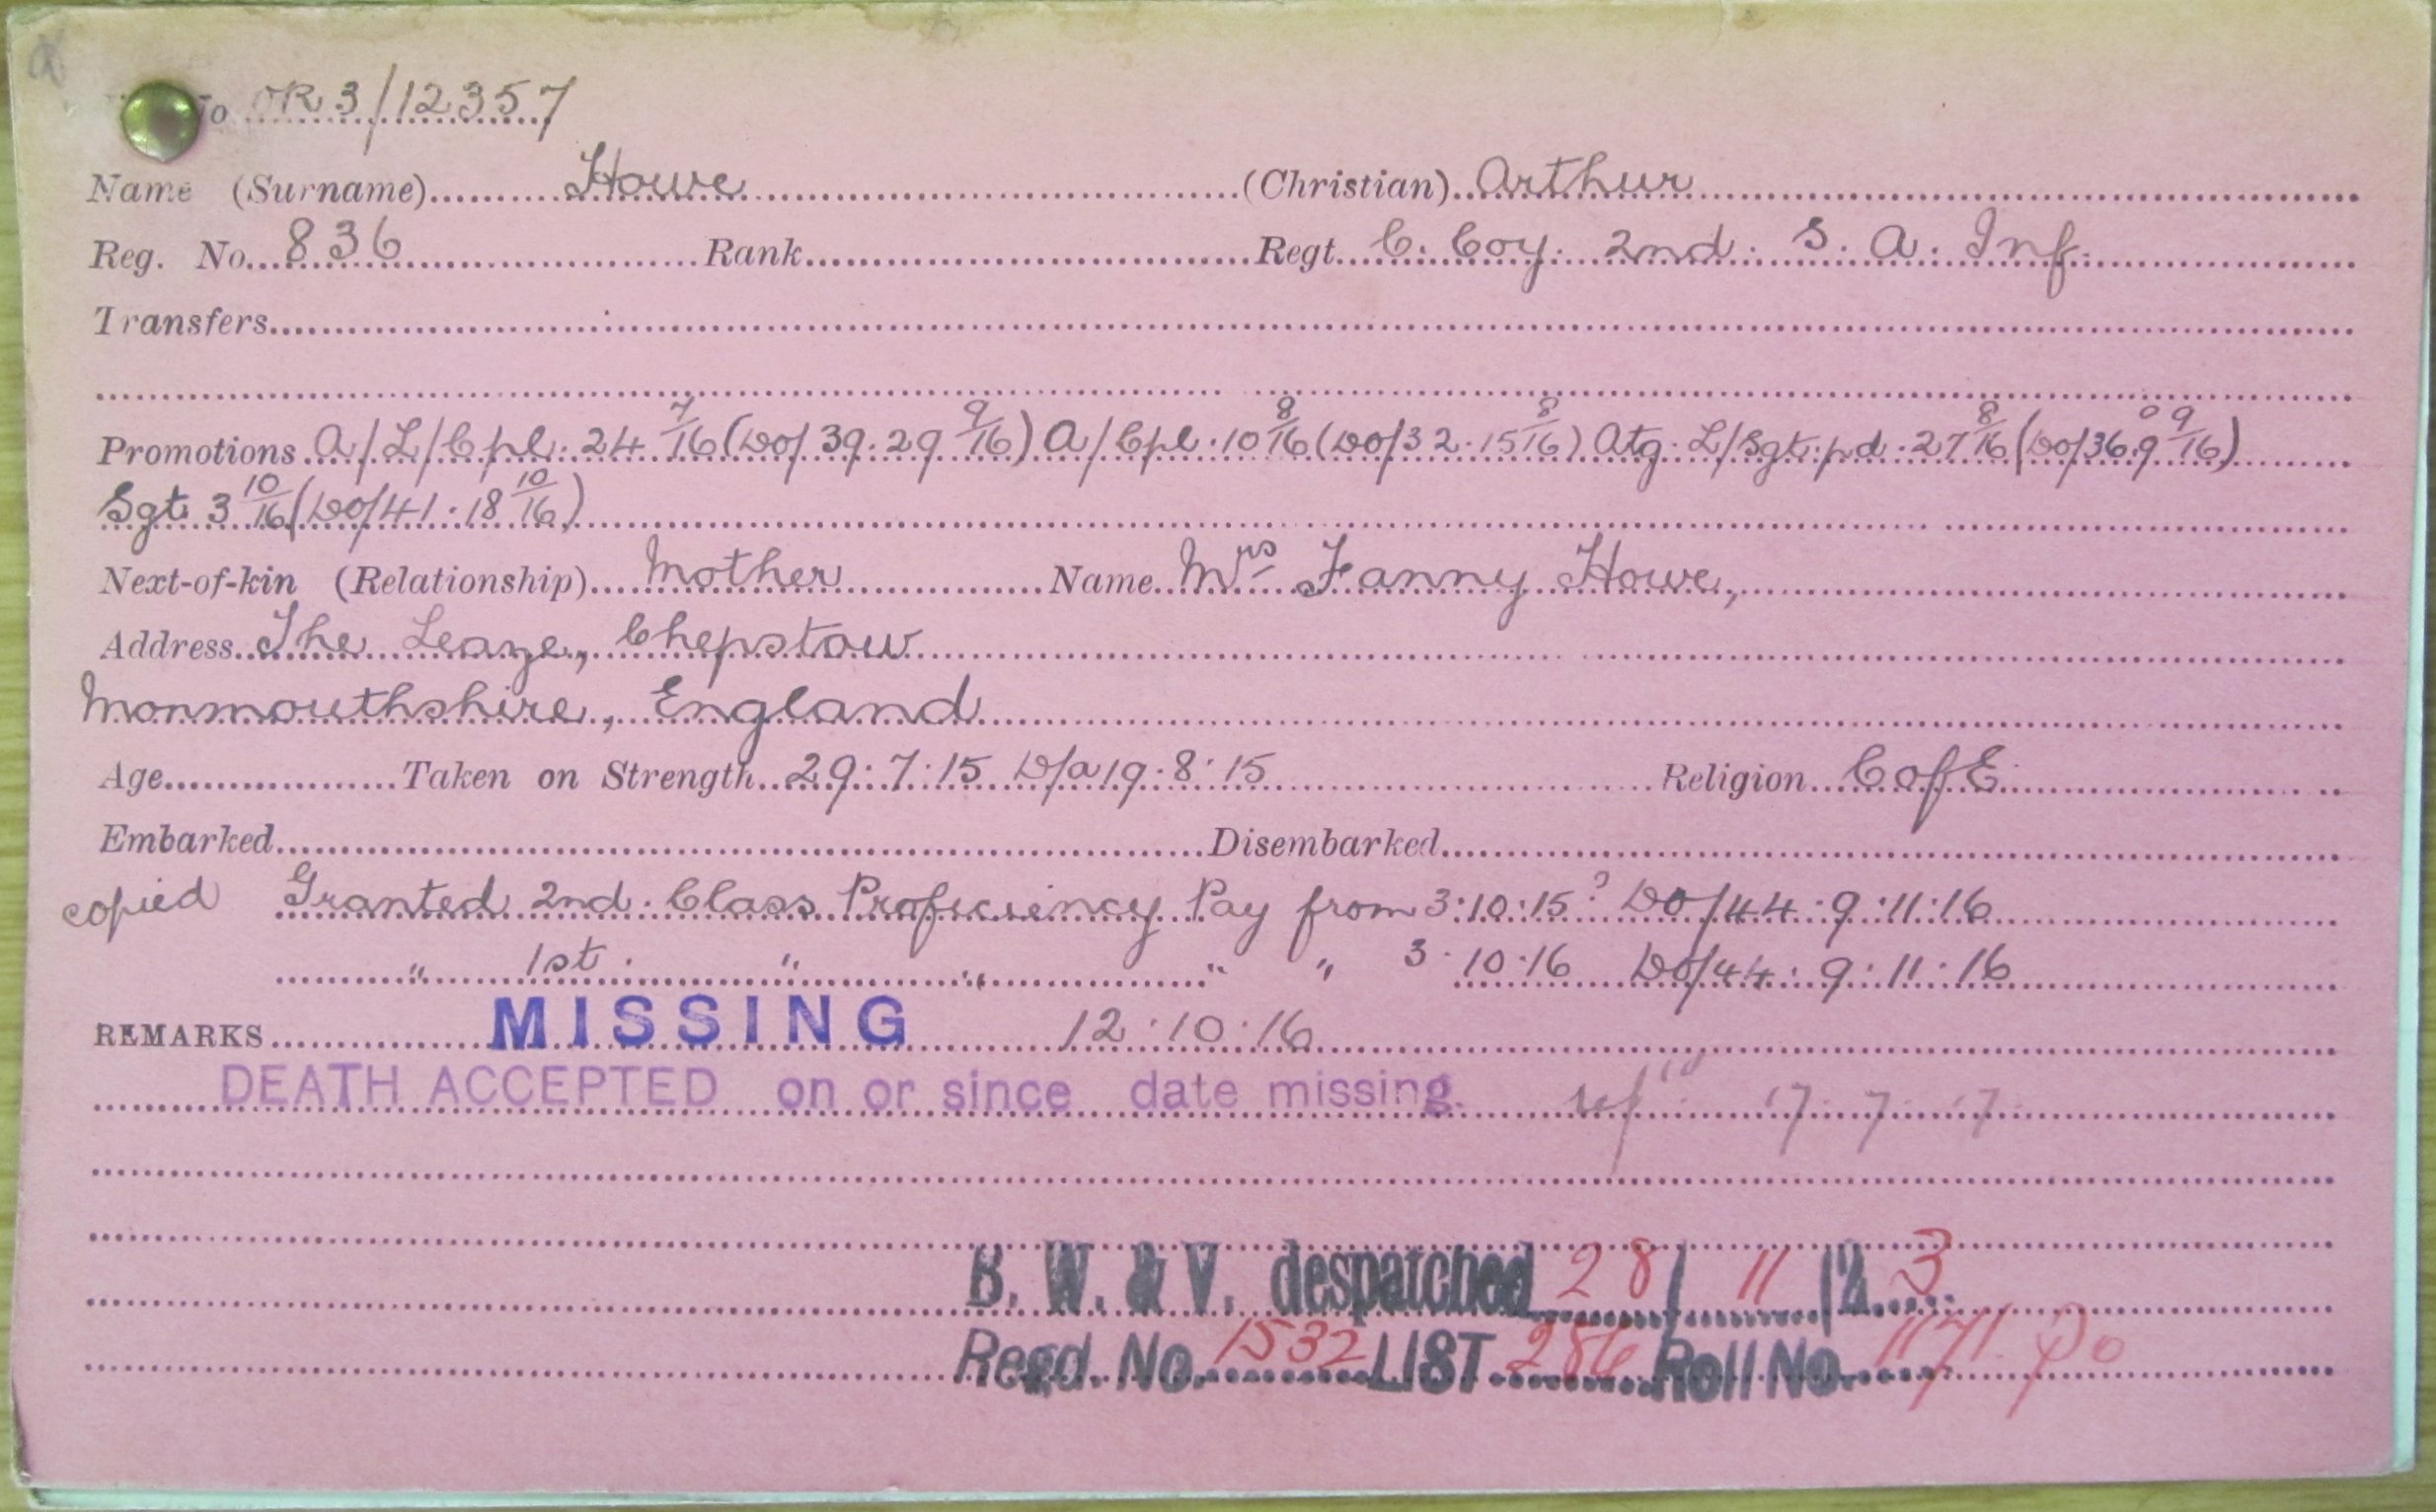 No OR3/12357
Name (Surname) Howe (Christian) Arthur
Reg. No. 836 Rank Regt. C. Coy. 2nd. S. A. Inf.
Transfers
Promotions A/L/Cpl. 24 7/16 (DO/39. 29 9/16) A/Cpl. 10 8/16 (DO/32. 15 8/16) Atg. L/Sgt. pd. 27 8/16 (DO/36. 9 9/16)
Sgt 3 10/16 (DO/41. 18 10/16)
Next-of-kin (Relationship) Mother Name Mrs Fanny Howe,
Address The Leaze, Chepstow
Monmouthshire, England
Age Taken on Strength 29:7:15 D/a 19:8:15 Religion C of E.
Embarked Disembarked
copied Granted 2nd. Class Proficiency Pay from 3:10:15? DO/44:9:11:16
" 1st. " " " " 3.10.16 DO/44:9:11:16
REMARKS MISSING 12:10:16
DEATH ACCEPTED on or since date missing. 17.7.17
B. W. & V. despatched 28/11/23
Regd. No. 1532 LIST 286 Roll No. 1171.